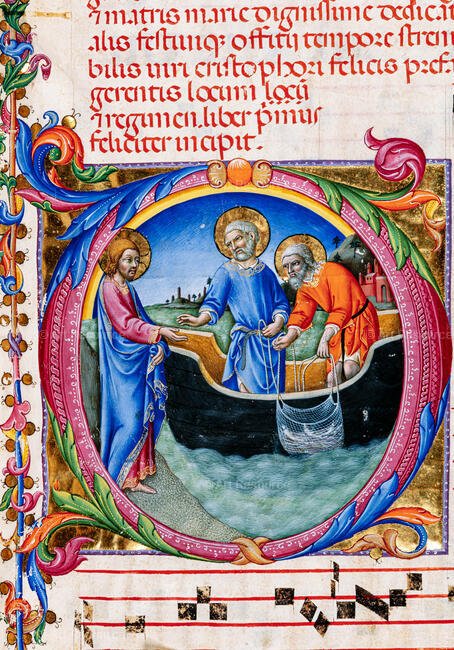 ⁊ matris marie dignissime dedicat
alis festiuiq; offitij tempore stren
bilis uiri cristophori felicis pref
gerentis locum
⁊ regimen. liber p̄mus
feliciter incipit.